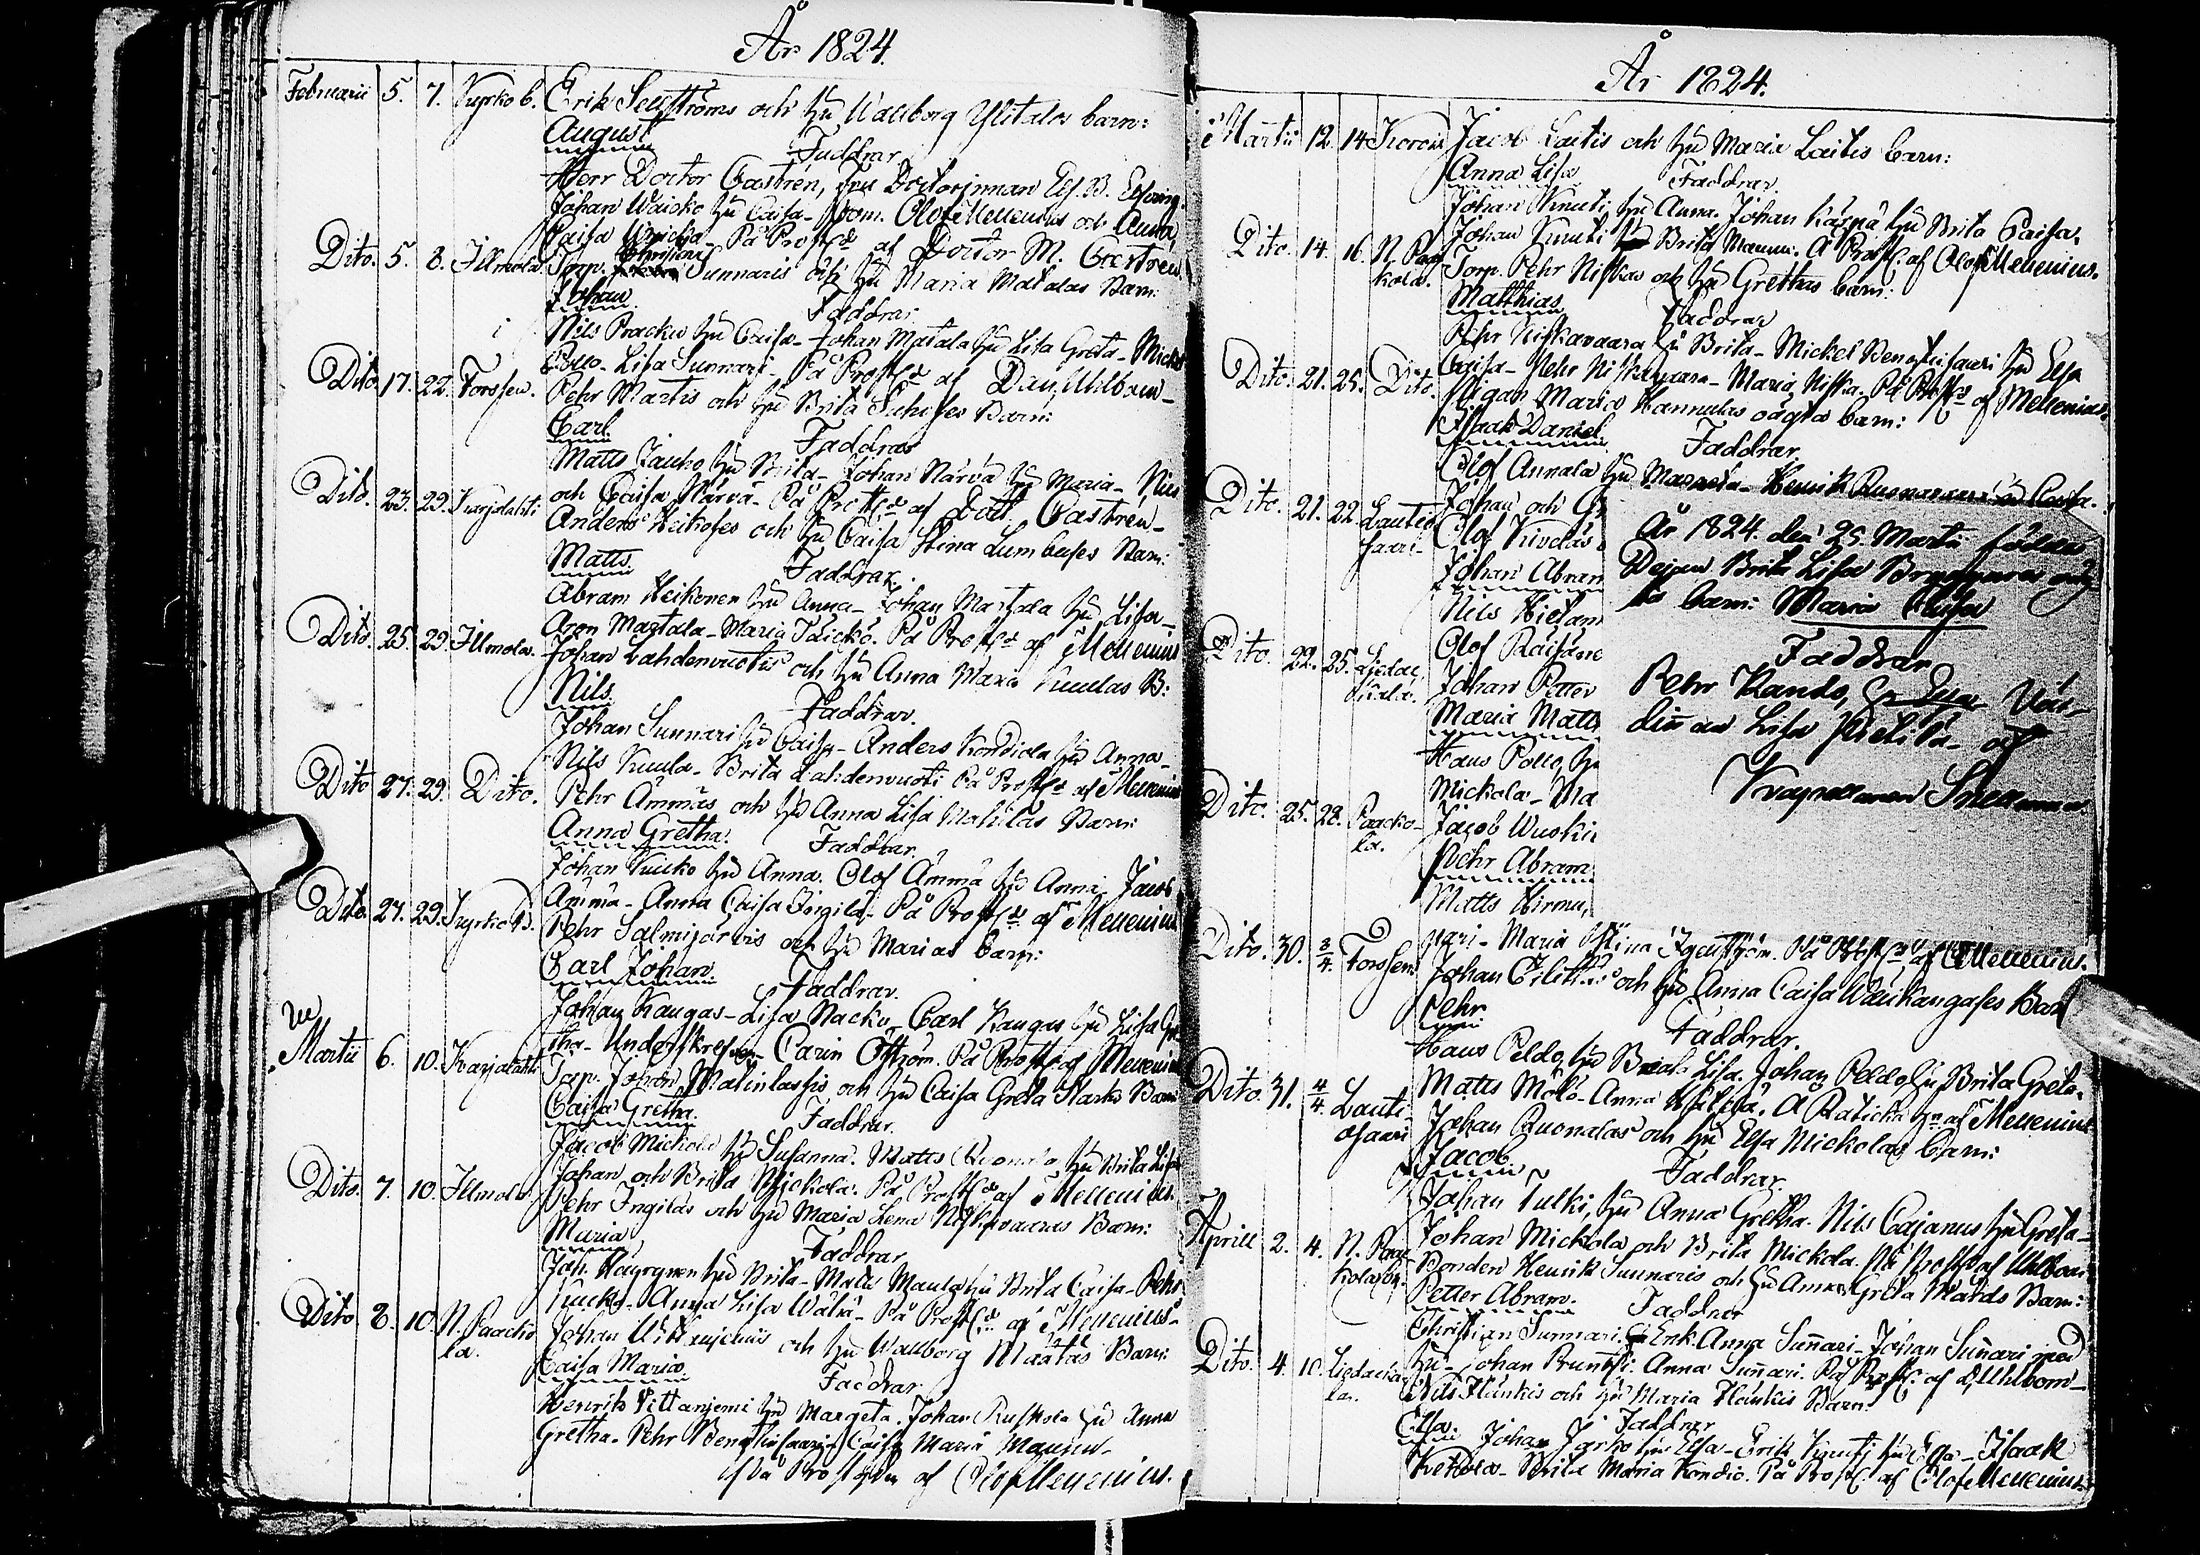 År 1824.
Februarii 5. 7. Kyrko b. Erik Seuströms och hu Wallborg Ylitalos barn:
August Faddrar
Herr Doctor Castrén, Fru Doctorinnan
Johan Waicko hu Caisa- Olof Mellenius och Anna
Caisa På Prostgd af Doctor M. Castren
Dito. 5. 8. Illmola. Torp. Christian Sunnaris och hu Maria Matalas Barn:
Johan Faddrar
Nils Praekio hu Caisa- Johan Matala hu Lisa Greta- Mickel
Lisa Sunnari- På Prostgd af Dan. Uhlbom-
Dito. 17. 22. Forssen. Pehr Martis och hu Brita Barn:
Carl. Faddrar
Matts Jauho hu Brita- Johan Närvä hu Maria- Nils
och Caisa Närvä- På Prostgd af Doct. Castrén-
Dito. 23. 29. Karjalahti Anders Heikoses och hu Caisa Stina Lumbuses Barn:
Matts. Faddrar.
Abram Heikonen hu Anna- Johan Martala hu Lisa-
Aron Martala- Maria På Prostgd af Mellenius
Dito. 25. 29. Illmola. Johan Lahdenvuotis och hu Anna Maria Kuulas B:
Nils. Faddrar.
Johan Sunnari hu Caisa- Anders Kondiola hu Anna-
Nils Kuula- Brita Lahdenvuoti På Prostgd af Mellenius
Dito 27. 29. Dito. Pehr Ämmäs och hu Anna Lisa Matilas Barn:
Anna Gretha. Faddrar
Johan Kuicko hu Anna. Olof Ämmä hu Anna Jacob
Ämmä- Anna Caisa Ingila- På Prostgd af Mellenius
Dito 27. 29. Kyrko B. Pehr Salmijärvis och hu Marias barn:
Carl Johan. Faddrar.
Johan Kangas- Lisa Nacku- Carl Kangas hu Lisa Gre
tha- Undersk Carin Öström. På Prostgd af Mellenius
Martii 6. 10. Karjalahti Torp. Johan Malinlassis och hu Caisa Greta Starks Barn
Caisa Gretha. Faddrar.
Jacob Mickola hu Susanna. Matts Ruonala hu Brita Lisa
Johan och Brita Mickola. På Prostgd af Mellenius
Dito. 7. 10. Illmola Pehr Ingilas och hu Maria Lena Niskavaaras Barn:
Maria Faddrar
Joh. Häyrynen hu Brita- Matts Maula hu Brita Caisa- Pehr
Kuicko- Anna Lisa Wälii- På Prostgd af Mellenius-
Dito 8. 10. N. Paacko Johan Wittanjemis och hu Wallborg Määttäs Barn:
la. Caisa Maria Faddrar
Henrik Vittanjemi hu Margeta. Johan Ruskola hu Anna
Gretha. Pehr Caisa Maria Maunu-
På Prostgden af Olof Mellenius.
År 1824.
Martii 12. 14 Koroi Jacob Laitis och hu Maria Laitis barn:
Anna Lisa Faddrar.
Johan Knuti hu Anna. Johan Kärnä hu Brita Caisa,
Johan Knuti Brita Maunu. Å Prostg. af Olof Mellenius.
Dito. 14. 16. N. Paac Torp. Pehr Niskas och hu Grethas barn:
kola. Matthias. Faddrar
Pehr Niskavaara hu Brita- Mickel hu Elsa
Caisa- Pehr Niskavaara- Maria Niska. På Prostgd af Mellenius.
Dito. 21. 25. Dito. Pigan Maria Hannulas oägta barn:
Isaak Daniel. Faddrar.
Olof Annala hu Margeta- Henrik hu Caisa.
Johan och Gr
Dito. 21. 22. Lauti Olof Kivelas
saari- Johan Abram
Nils Hietam
Olof Räisäne
Dito. 22. 25. Liedac Johan Petter
kiala. Maria Matts
Hans Pollo, hu
Mickola- Ma
Dito. 25. 28. Paacko- Jacob Wuoskis
la. Pehr Abram
Matts Hirmu,
År 1824. den 25. Martii föddes
Dejan Brita Lisa oäg
ta barn: Maria Elisa
Faddrar
Pehr Kando, Vär-
dinnan Lisa Pietilä- af
Krapellanen Snellman
nari- Maria Stina På Prostgd af Mellenius.
Dito. 30. 3/4. Forssen. Johan och hu Anna Caisa Waikangases Barn
Pehr. Faddrar.
Hans Peldo, hu Brita Lisa. Johan Peldo hu Brita Greta.
Matts Mölö- Anna af Mellenius
Dito. 31. 4/4. Lauti Johan Ruonalas och hu Elsa Mickolas Barn:
osaari Jacob Faddrar.
Johan Tulki, hu Anna Gretha. Nils Cajanus hu Greta-
Johan Mickola och Brita Mickola. På Prostgd af Uhlbom
Aprill 2. 4. N. Paac Bonden Henrik Sunnaris och hu Anna Greta Mards Barn:
kola by. Petter Abram. Faddrar
Christian Sunnari. Erik. Anna Sunnari- Johan Sunnari med
hu- Johan Pruntsi. Anna Sunnari. På Prostg. af D. Uhlbom-
Dito. 4. 10. Liedackia Nils Hankis och hu Maria Hankis Barn.
la. Elsa. Faddrar
Johan Jarko hu Elsa- Erik Knuti hu Elsa- Isaak
Ketola- Brita Maria Kondio. På Prostg. af Olof Mellenius.